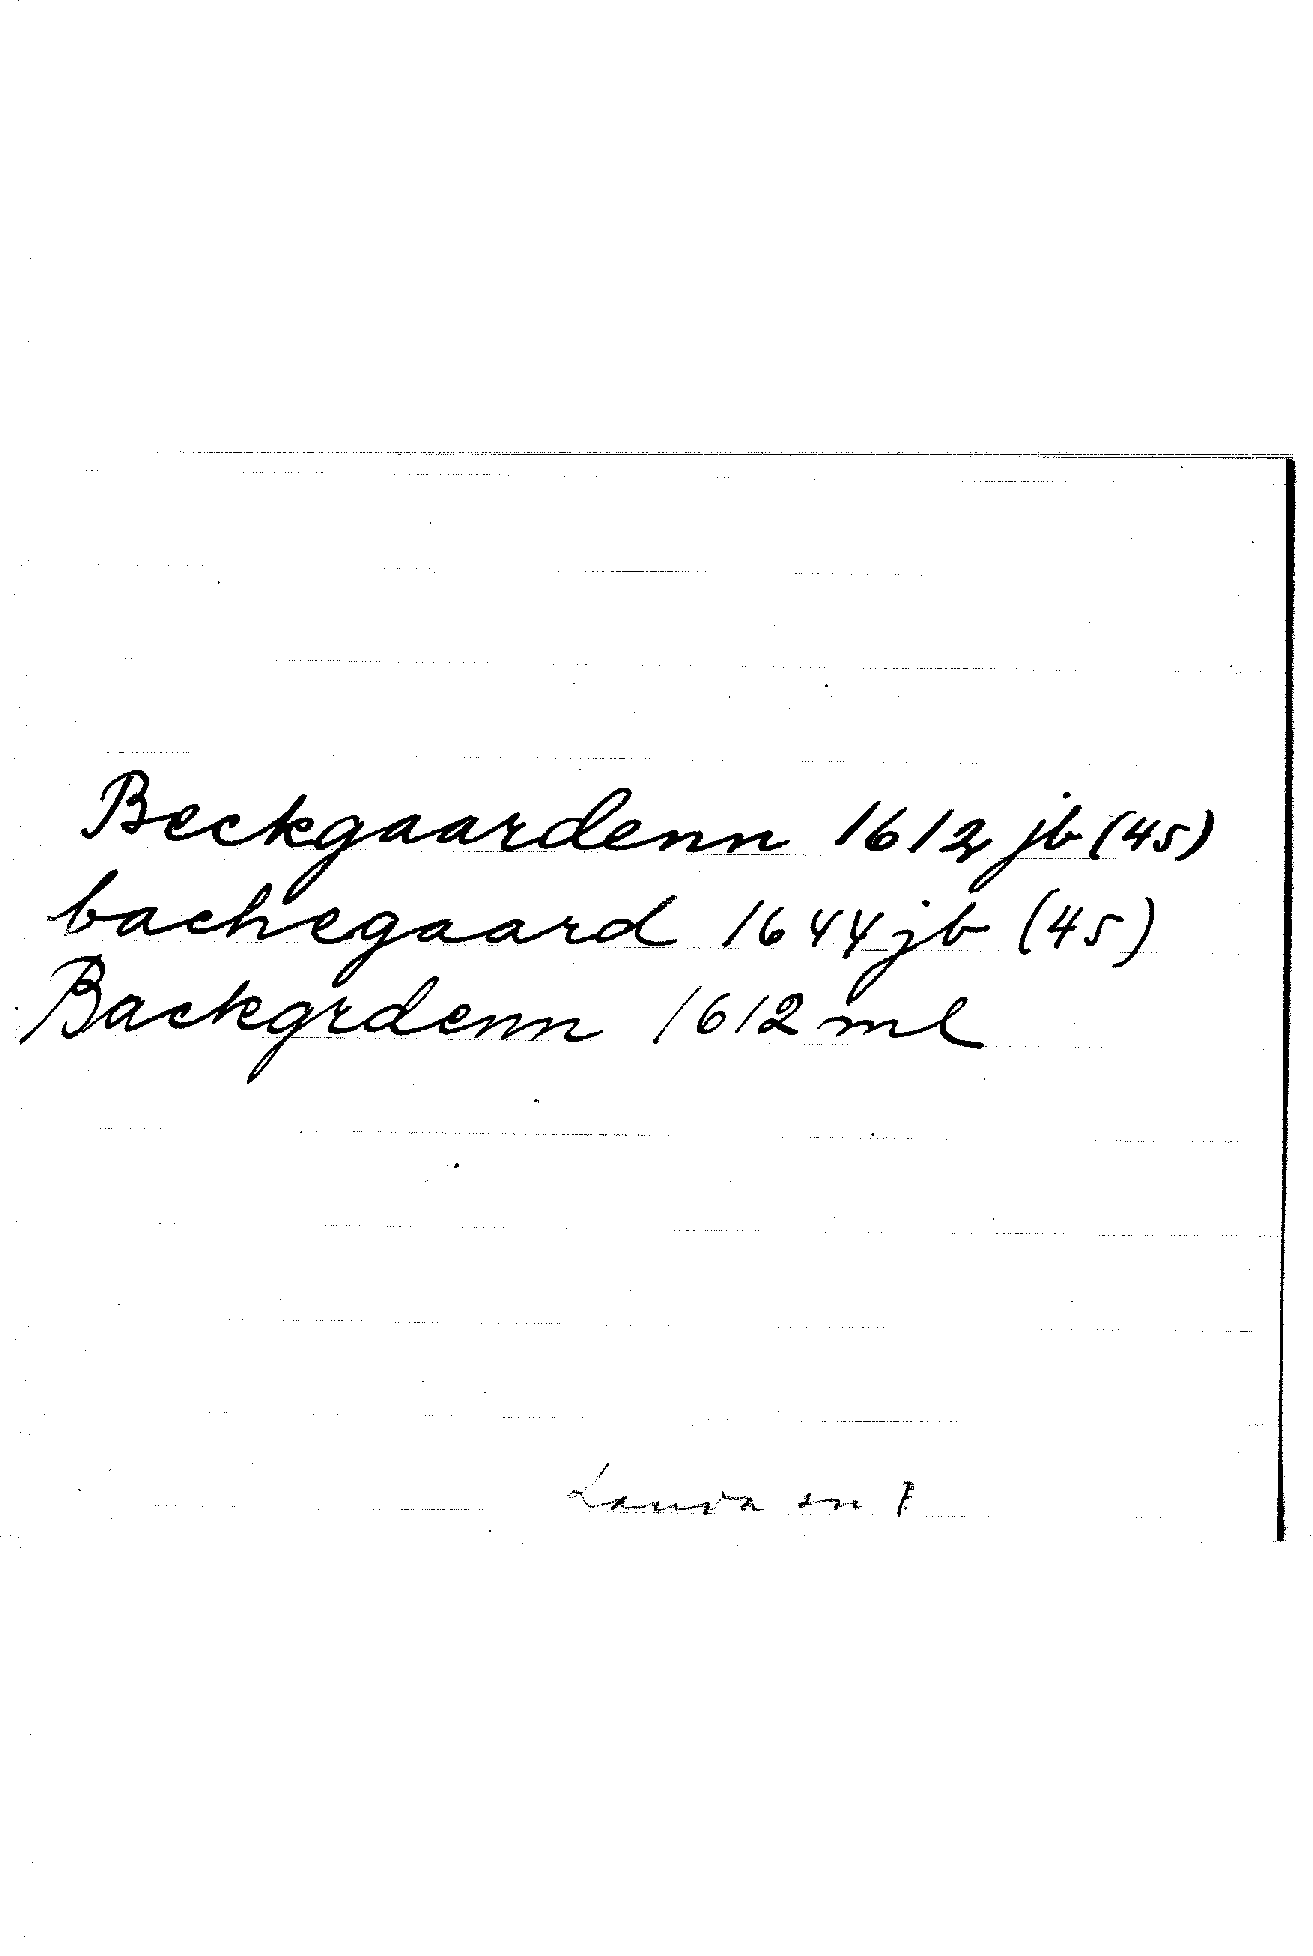 Beckgaardenn 1612 jb (4s)
bachegaard 1644 jb (4s)
Backgrdenn 1612 ml
Landa sn P